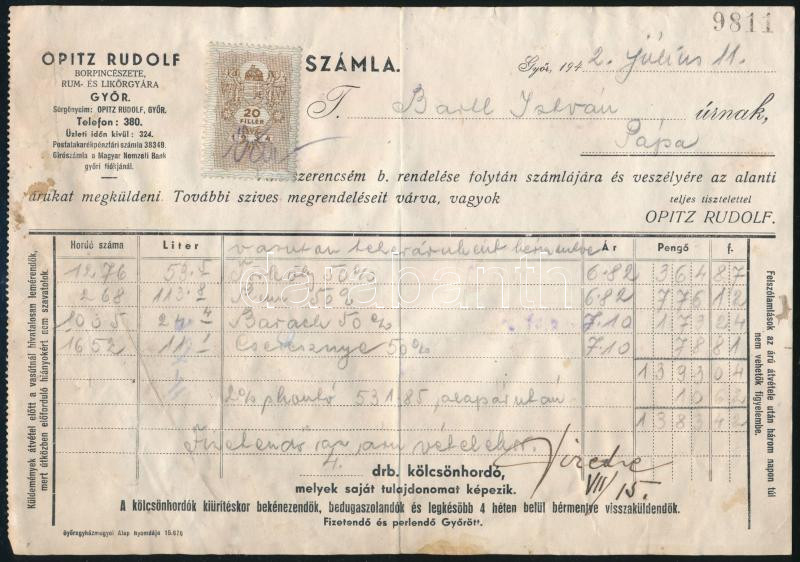 9811
OPITZ RUDOLF
BORPINCÉSZETE,
RUM- ÉS LIKŐRGYÁRA
GYŐR.
Sürgönycím: OPITZ RUDOLF, GYŐR.
Telefon: 380.
Üzleti időn kívül: 324.
Postatakarékpénztári számla 38349.
Girószámla a Magyar Nemzeti Bank
győri fiókjánál.
20
FILLÉR
SZÁMLA.
Győr, 194 2. július 11.
T. Bartl István úrnak,
Pápa
szerencsém b. rendelése folytán számlájára és veszélyére az alanti
árukat megküldeni. További szives megrendeléseit várva, vagyok
teljes tisztelettel
OPITZ RUDOLF.
Hordó száma Liter Ár Pengő f.
vasuton teheráruként bérmentve
1276 53.5 Törköly 50% 6.82 364 87
268 113.8 Rum 50% 6.82 776 12
1005 24.4 Barack 50% 7.10 173 24
1652 11.1 Cseresznye 50% 7.10 78 81
1393 04
2% 531.85 után 10 62
1383 42
Fizetendő az áru vételekor.
4. drb. kölcsönhordó,
melyek saját tulajdonomat képezik.
VII/15.
A kölcsönhordók kiürítéskor bekénezendők, bedugaszolandók és legkésőbb 4 héten belül bérmentve visszaküldendők.
Fizetendő és perlendő Győrött.
Győregyházmegyei Alap Nyomdája 15.676
Küldemények átvétel előtt a vasútnál hivatalosan lemérendők,
mert útközben előforduló hiányokért nem szavatolok.
Felszólamlások az árú átvétele után három napon túl
nem vehetők figyelembe.
darabanth